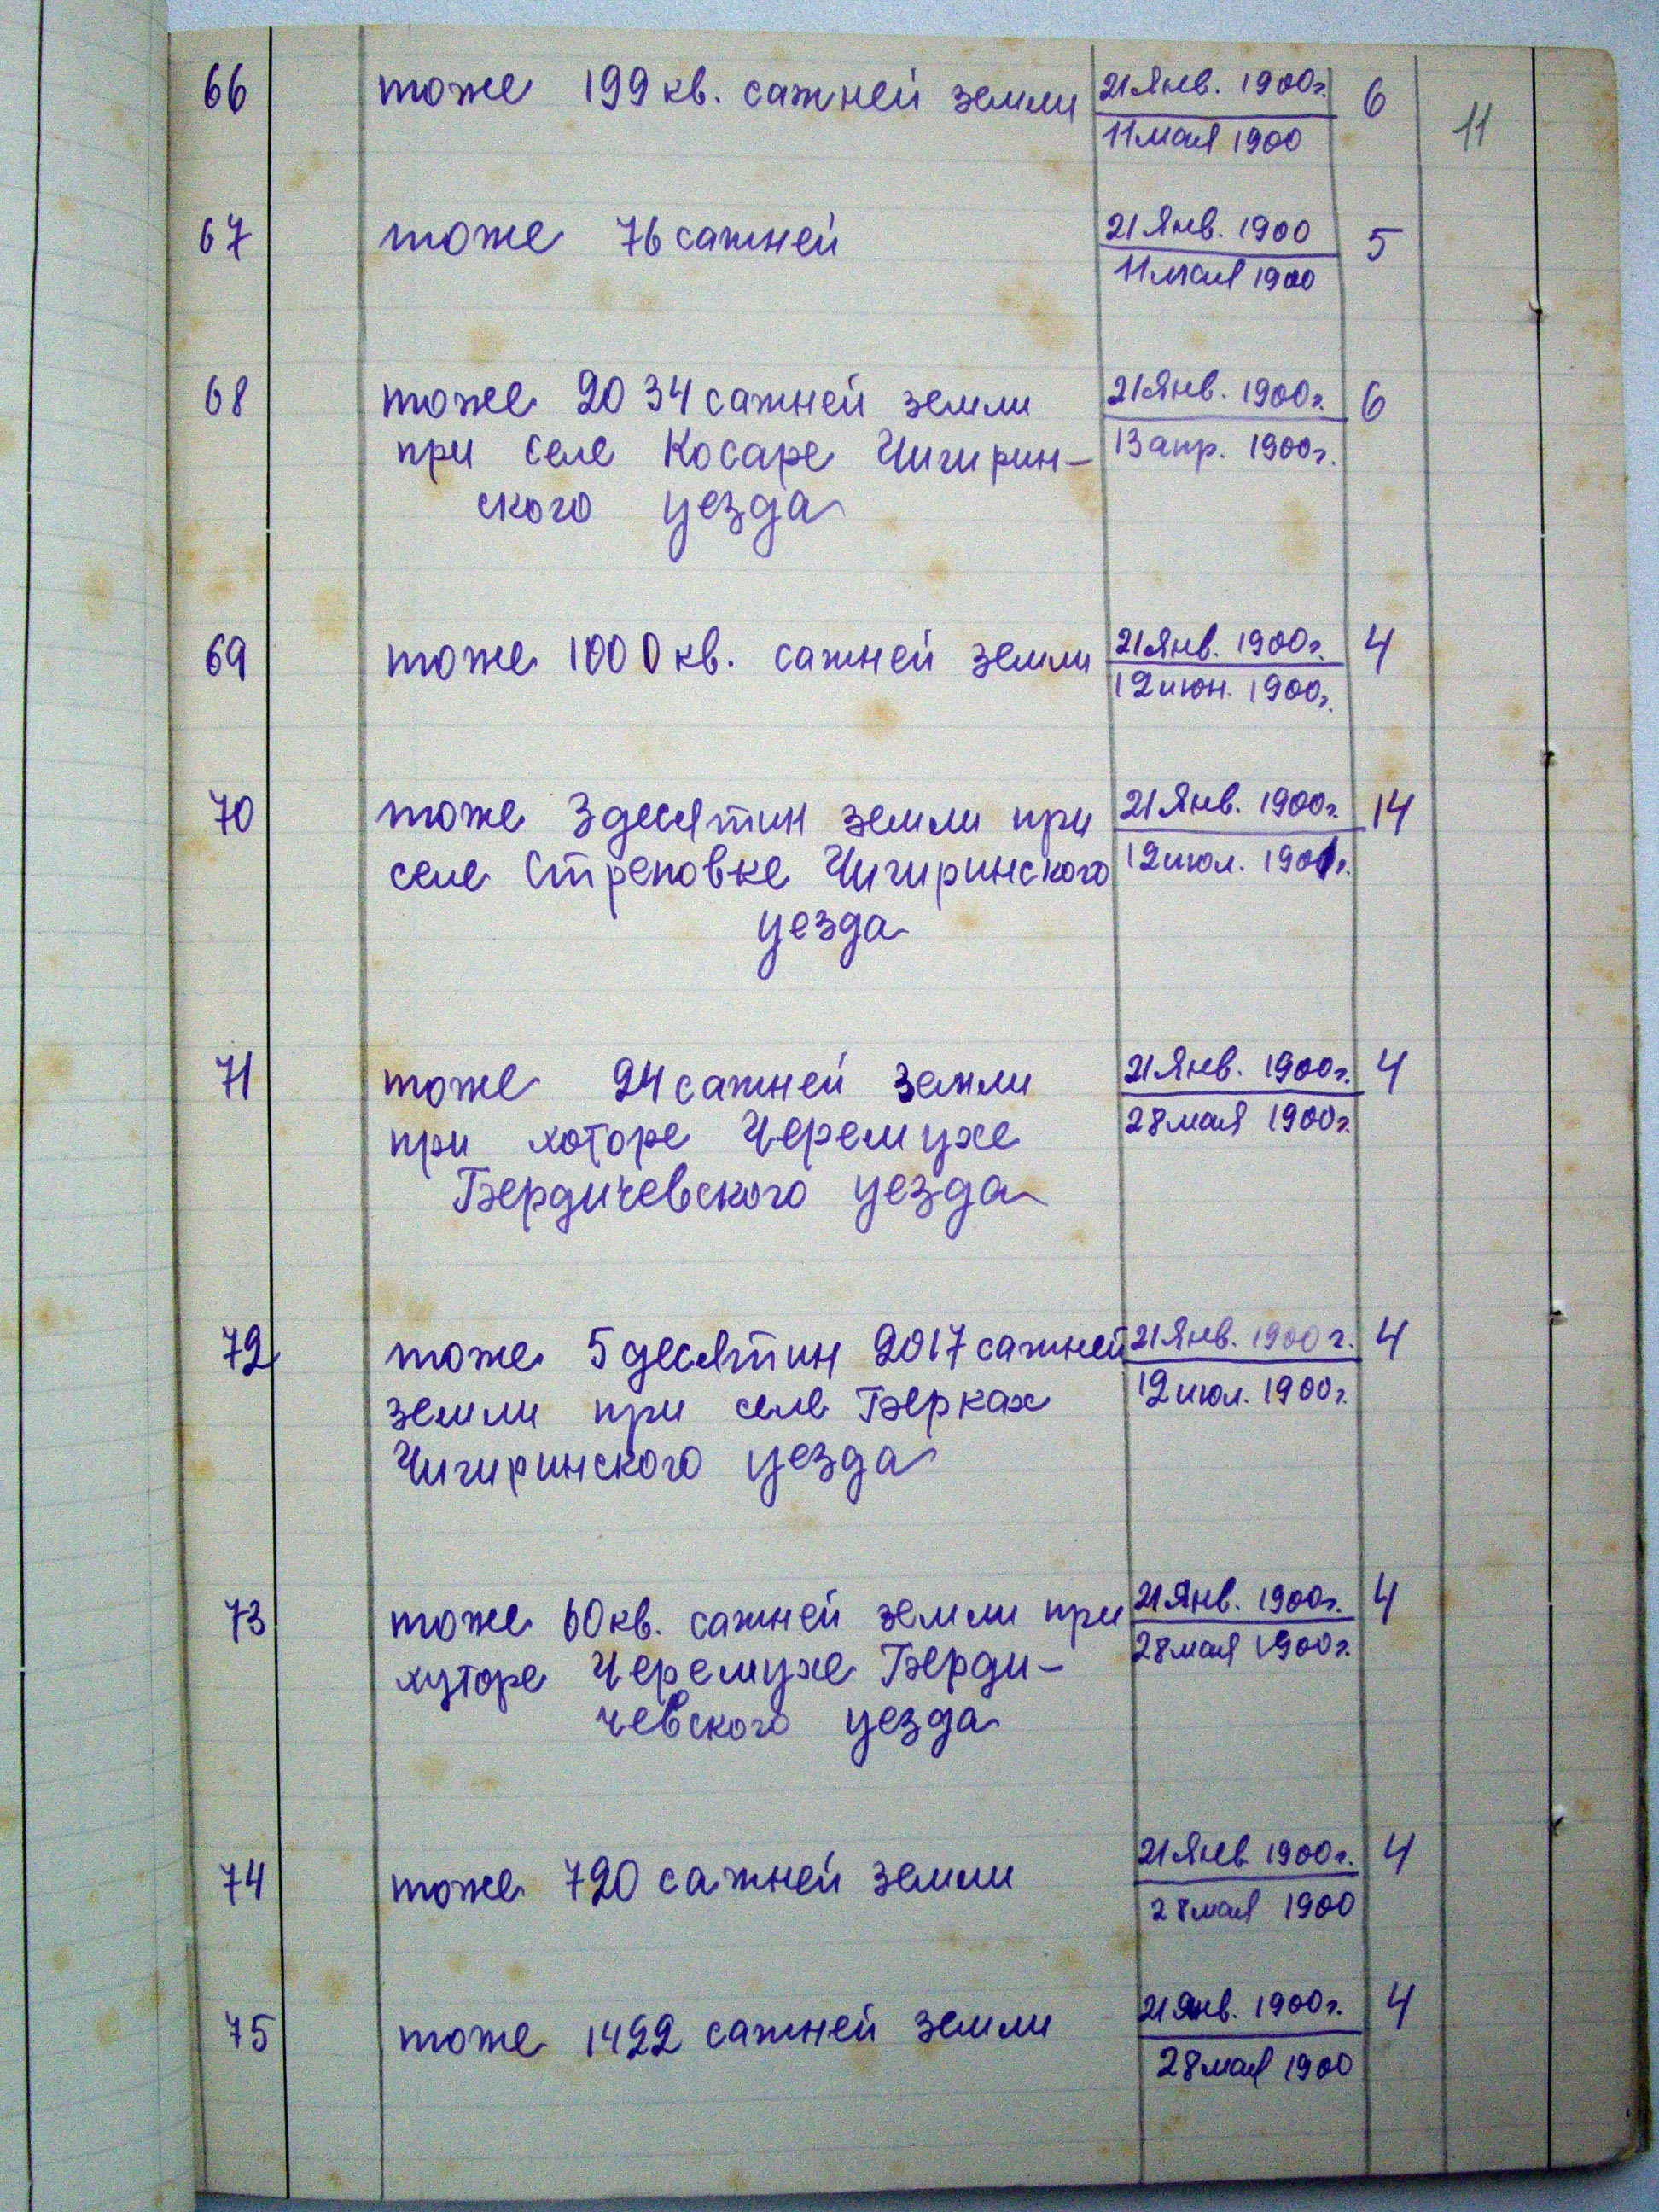 11
66 тоже 199 кв. сажней земли 21 Янв. 1900г. 6
11 мая 1900
67 тоже 76 сажней 21 Янв. 1900 5
11 мая 1900
68 тоже 2034 сажней земли 21 Янв. 1900г. 6
при селе Косаре Чигирин- 13 апр. 1900г.
ского уезда
69 тоже 1000 кв. сажней земли 21 Янв. 1900г. 4
12 июн. 1900г.
70 тоже 3 десятин земли при 21 Янв. 1900г. 14
селе Стреповке Чигиринского 12 июл. 1901г.
уезда
71 тоже 24 сажней земли 21 Янв. 1900г. 4
при хоторе Черемухе 28 мая 1900г.
Бердичевского уезда
72 тоже 5 десятин 2017 сажней 21 Янв. 1900г. 4
земли при селе Берках 12 июл. 1900г.
Чигиринского уезда
73 тоже 60 кв. сажней земли при 21 Янв. 1900г. 4
хуторе Черемухе Берди- 28 мая 1900г.
чевского уезда
74 тоже 720 сажней земли 21 Янв 1900г. 4
28 мая 1900
75 тоже 1422 сажней земли 21 Янв. 1900г. 4
28 мая 1900